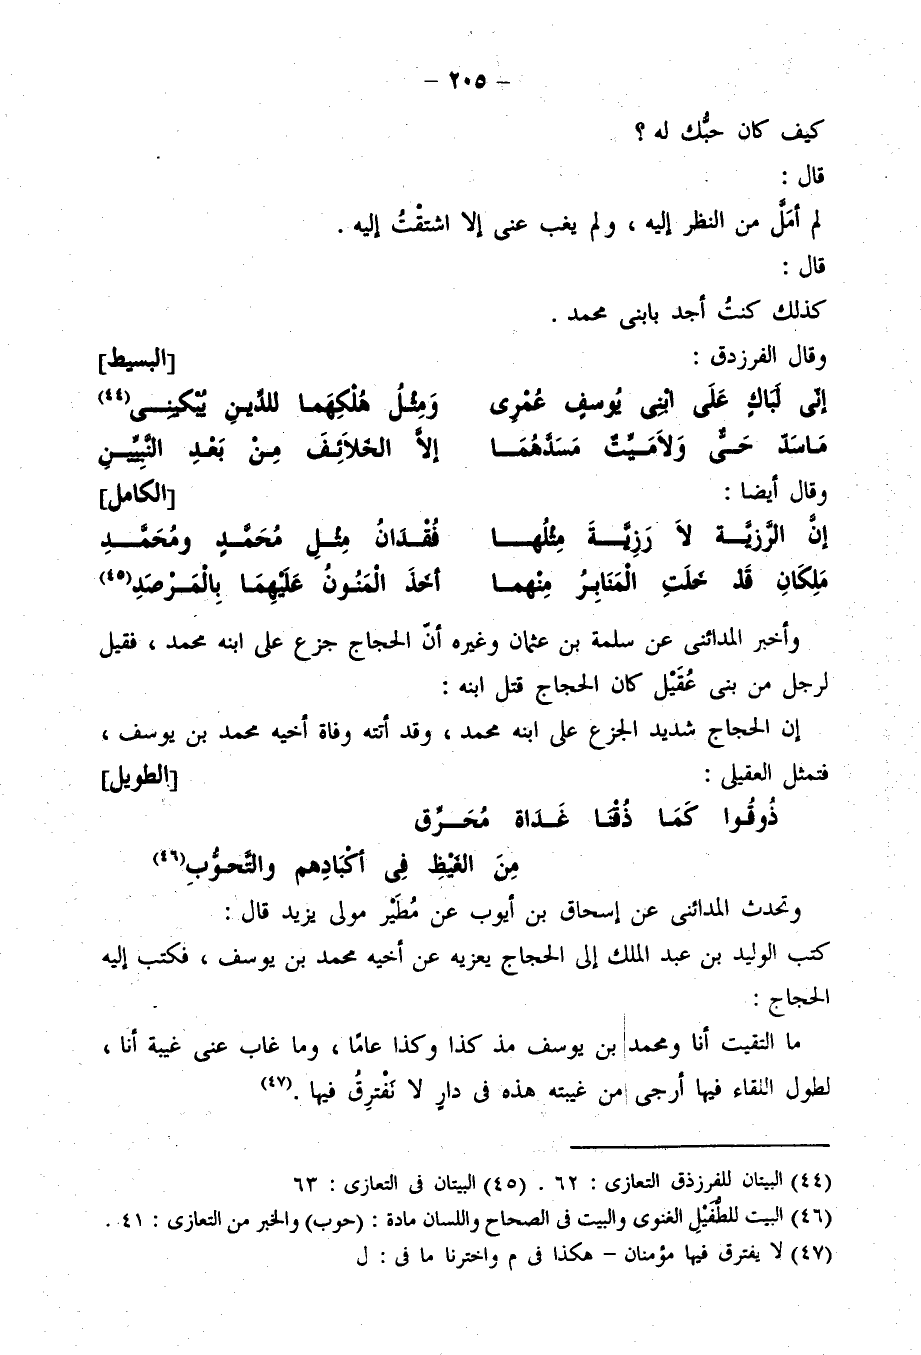 – ٢٠٥ –
كيف كان حبُّك له ؟
قال :
لم أمَلَّ من النظر إليه ، ولم يغب عنى إلا اشتقْتُ إليه .
قال :
كذلك كنتُ أجد بابنى محمد .
وقال الفرزدق : [البسيط]
إنّى لَبَاكٍ عَلَى ابْنِى يُوسفٍ عُمْرِى وَمِثـلُ هُلْكِهَمـا للدَّيـنِ يُبْكينِـى(٤٤)
مَـاسَدّ حَـىٌّ وَلاَمَـيِّتٌ مَسَدَّهُمَــا إلاَّ الخَلاَئِـفَ مِـنْ بَعْـدِ النَّبِيِّيــنِ
وقال أيضا : [الكامل]
إنَّ الرَّزيَّــةَ لاَ رَزِيَّــةَ مِثْلُهــا فُقْـدَانُ مِثْـلِ مُحَمَّـدٍ ومُحَمَّــدِ
مَلِكَانِ قَدْ خَلَتِ الْمَنَابِـرُ مِنْهمـا أخَذَ الْمَنُـونُ عَلَيْهِمَـا بِالْمَـرْصَدِ(٤٥)
وأخبر المدائنى عن سلمة بن عثمان وغيره أنّ الحجاج جزع على ابنه محمد ، فقيل
لرجل من بنى عُقَيْل كان الحجاج قتل ابنه :
إن الحجاج شديد الجزع على ابنه محمد ، وقد أتته وفاة أخيه محمد بن يوسف ،
فتمثل العقيلى : [الطويل]
ذُوقُـوا كَمَـا ذُقْنَـا غَـدَاة مُحَــرِّق
مِنَ الغَيْظِ فِى أكْبَادِهم والتَّحوُّبِ(٤٦)
وتحدث المدائنى عن إسحاق بن أيوب عن مُطَيْر مولى يزيد قال :
كتب الوليد بن عبد الملك إلى الحجاج يعزيه عن أخيه محمد بن يوسف ، فكتب إليه
الحجاج :
ما التقيت أنا ومحمد بن يوسف مذ كذا وكذا عامًا ، وما غاب عنى غيبة أنا ،
لطول اللقاء فيها أرجى من غيبته هذه فى دارٍ لا نَفْترِقُ فيها .(٤٧)
(٤٤) البيتان للفرزذق التعازى : ٦٢ . (٤٥) البيتان فى التعازى : ٦٣
(٤٦) البيت للطُّفَيْلِ الغنوى والبيت فى الصحاح واللسان مادة : (حوب) والخبر من التعازى : ٤١ .
(٤٧) لا يفترق فيها مؤمنان – هكذا فى م واخترنا ما فى : ل